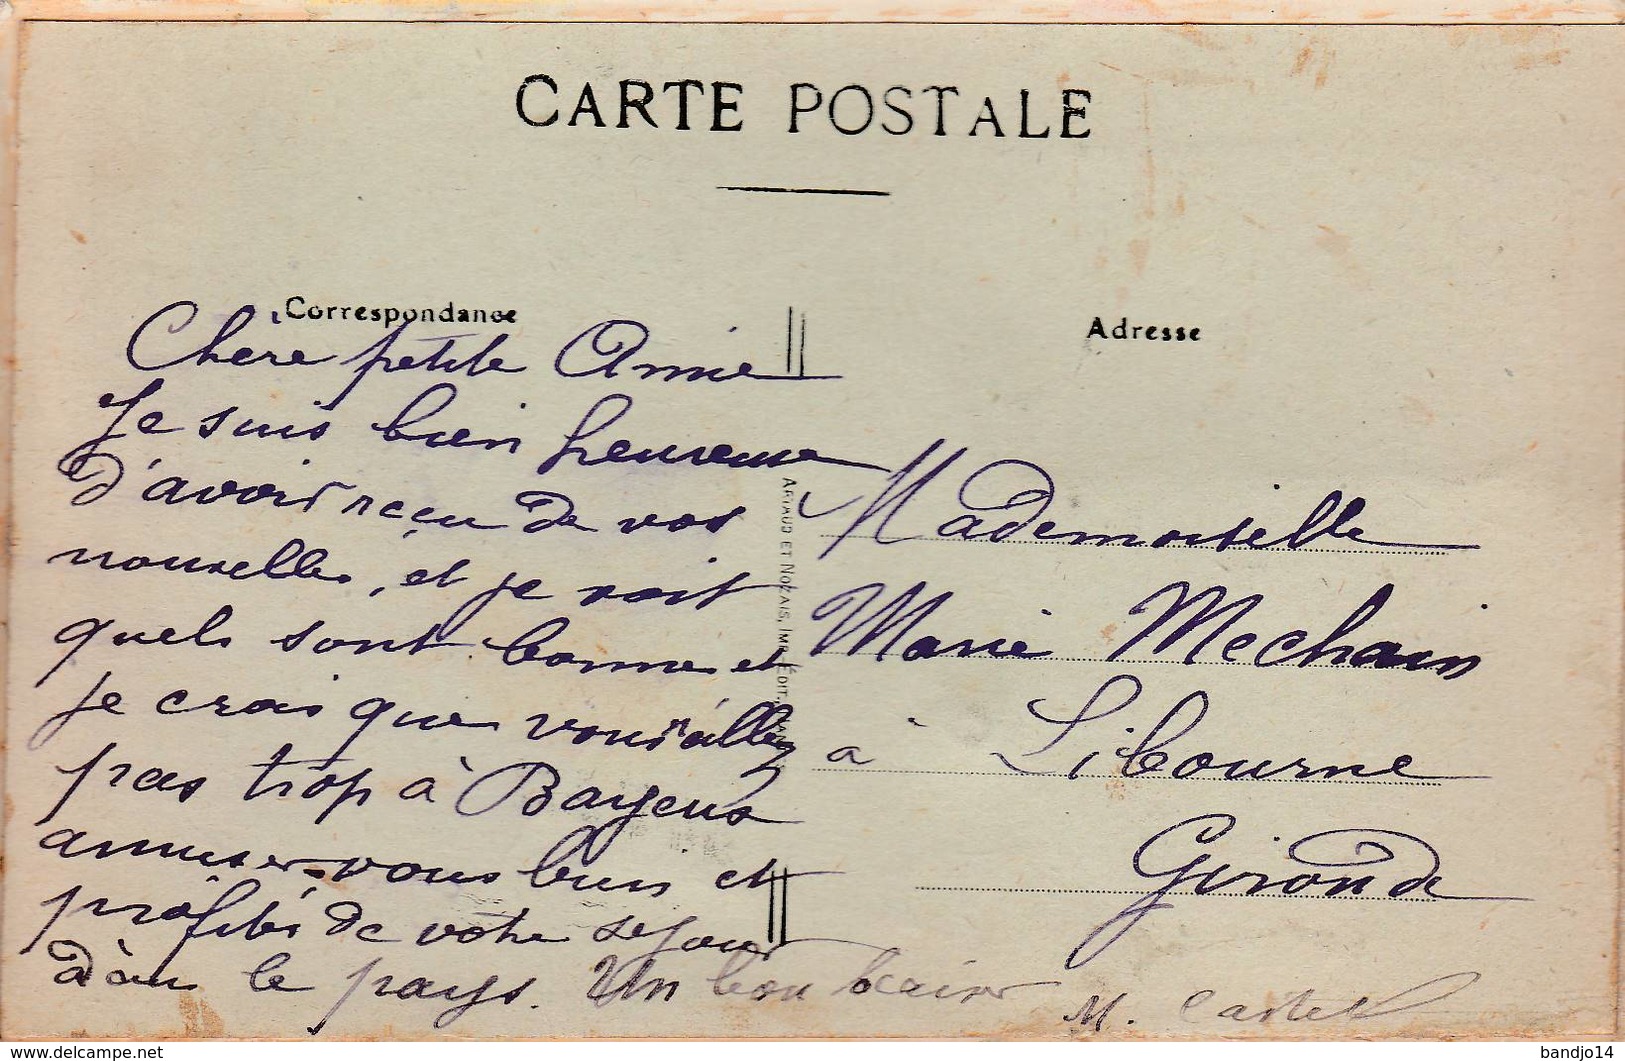 CARTE POSTALE
Correspondance
Adresse
Chère petite Amie
Je suis bien heureuse
d'avoir reçu de vos
nouvelles, et je voit
quels sont bonne et
je crois que vous allez
pas trop à Bayeux
amuser-vous bien et
profités de votre sejour
dans le pays. Un bon baiser
M. Castel
ARTAUD ET NOZAIS, IMP. ÉDIT.
Mademoiselle
Marie Mechain
à Libourne
Gironde
bandjo14